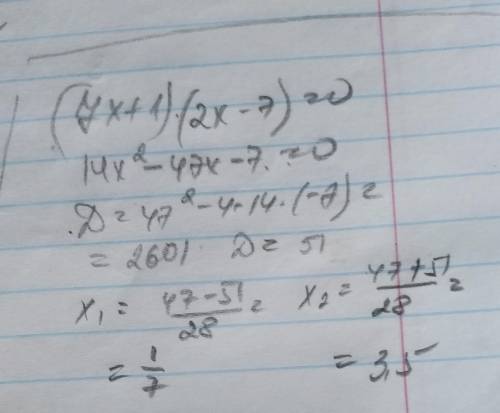 (7x+1)·(2x-7)=0
14x²-47x-7=0
D=47²-4·14·(-7)=
=2601 D=51
x₁=(47-51)/28= x₂=(47+51)/28=
=1/7 =3,5